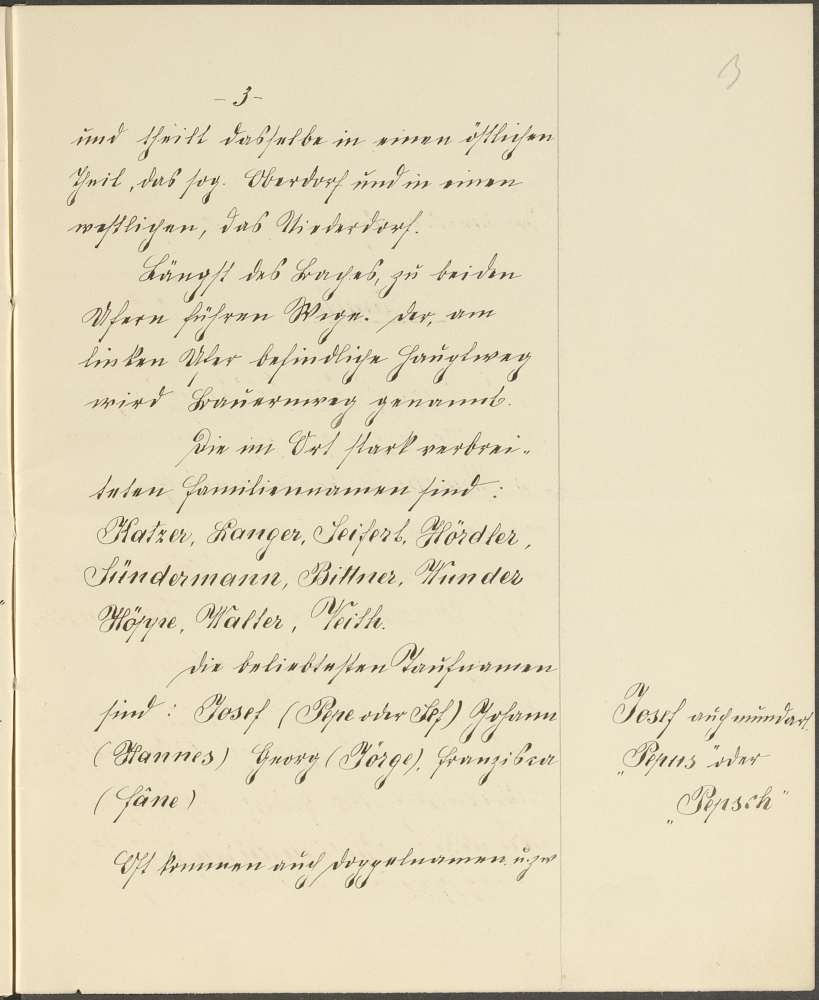 3
- 3 -
und theilt dasselbe in einen östlichen
Theil, das sog. Oberdorf und in einen
westlichen, das Niederdorf.
Längst des Baches, zu beiden
Ufern führen Wege. Der, am
linken Ufer befindliche Hauptweg
wird Bauernweg genannt.
Die im Ort stark verbrei-
teten Familiennamen sind:
Katzer, Langer, Seifert, Hördler,
Sündermann, Bittner, Wunder
Höppe, Walter, Veith.
Die beliebtesten Taufnamen
sind: Josef (Pepe oder Sef) Johann
(Hannes) Georg (Jörge), Franziska
(Fâne)
Oft kommen auch Doppelnamen u. zw
Josef auch mundart.
"Pepus" oder
"Pepsch"